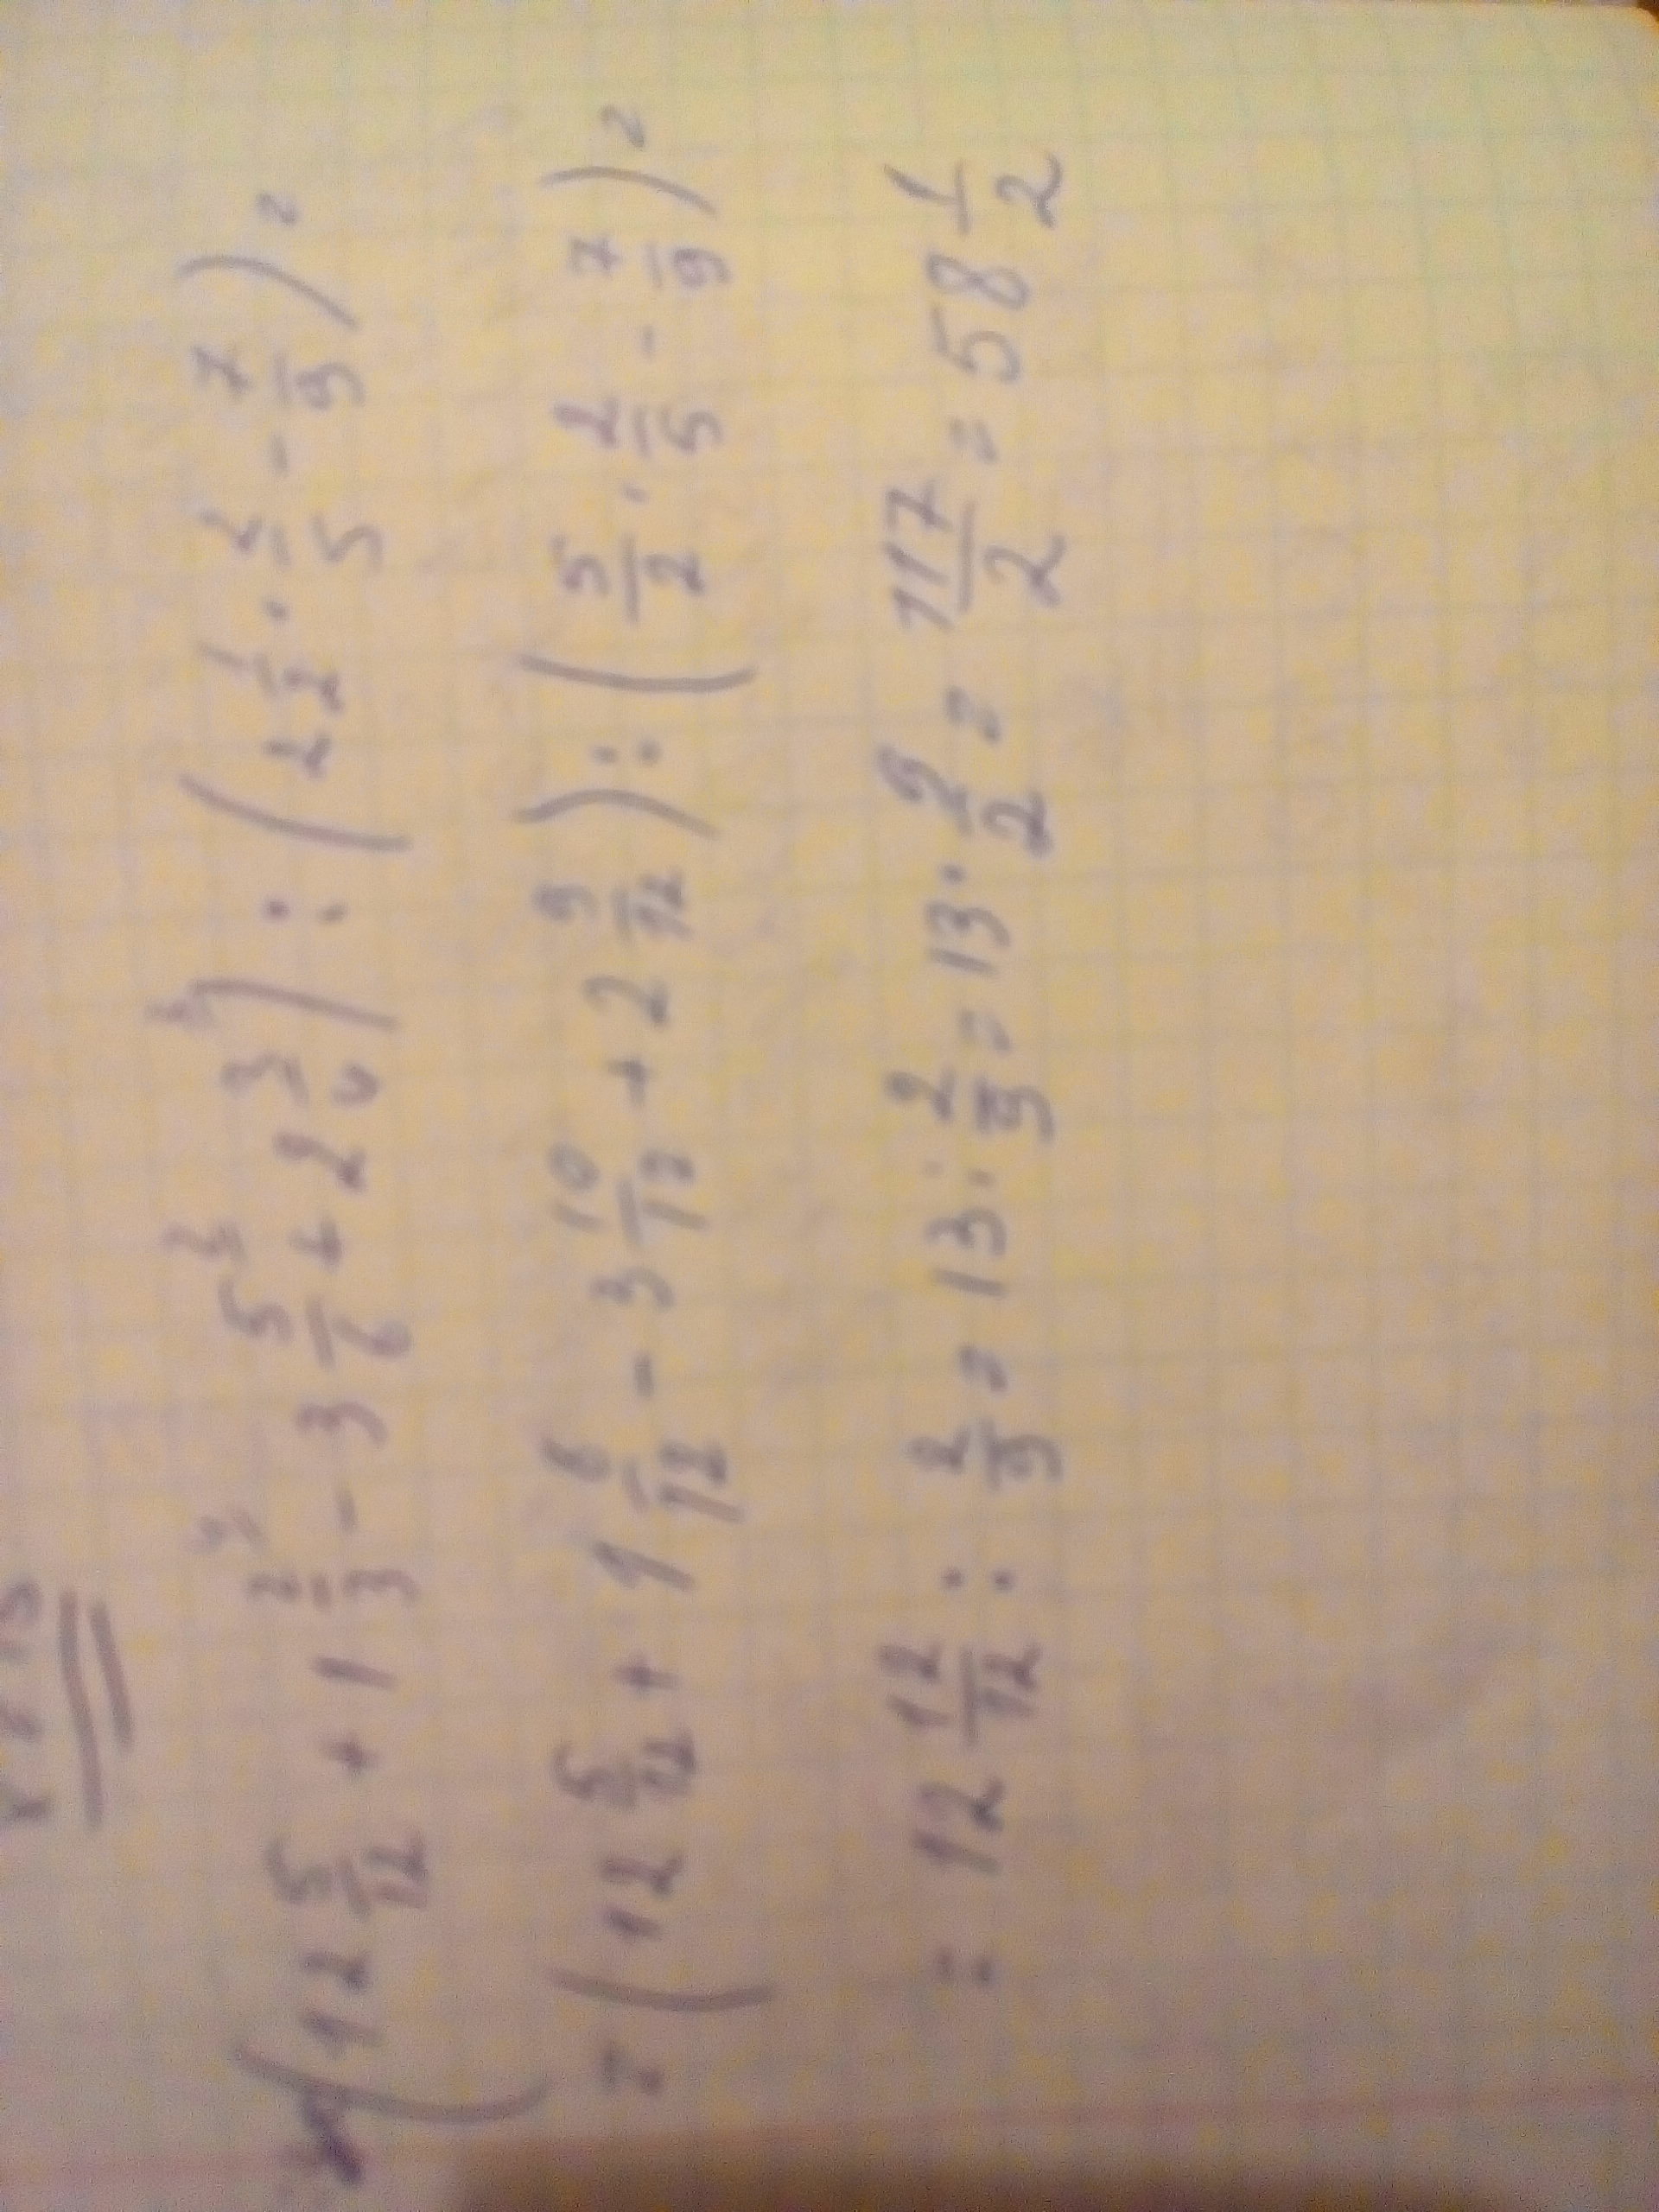 (12 5/12 + 1 2/3 - 3 5/6 + 2 3/4) : (2 1/2 · 2/5 - 7/9) =
= (12 5/12 + 1 8/12 - 3 10/12 + 2 9/12) : (5/2 · 2/5 - 7/9) =
= 12 12/12 : 2/9 = 13 : 2/9 = 13 · 9/2 = 117/2 = 58 1/2